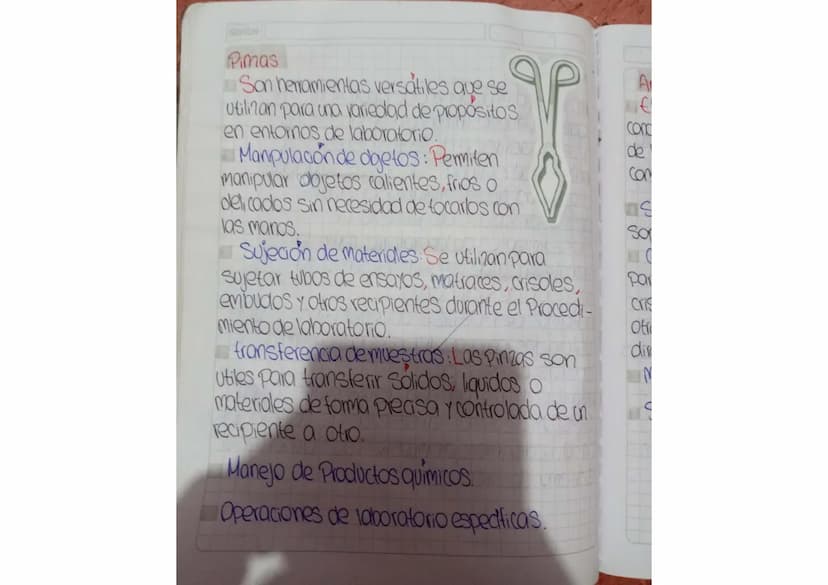 Pinzas
Son herramientas versátiles que se
utilizan para una variedad de propósitos
en entornos de laboratorio.
Manipulación de objetos: Permiten
manipular objetos calientes, fríos o
delicados sin necesidad de tocarlos con
las manos.
Sujeción de materiales: Se utilizan para
sujetar tubos de ensayos, matraces, crisoles,
embudos y otros recipientes durante el Procedi-
miento de laboratorio.
transferencia de muestras: Las pinzas son
utiles para transferir sólidos, liquidos o
materiales de forma precisa y controlada de un
recipiente a otro.
Manejo de Productos químicos.
Operaciones de laboratorio específicas.